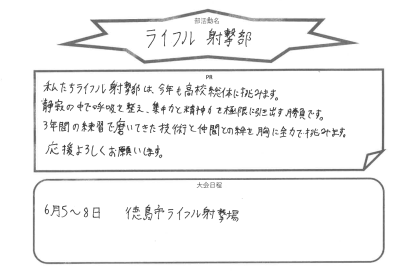 部活動名
ライフル 射撃部
PR
私たちライフル射撃部は、今年も高校総体に挑みます。
静寂の中で呼吸を整え、集中力と精神力を極限に引き出す勝負です。
3年間の練習で磨いてきた技術と仲間との絆を胸に全力で挑みます。
応援よろしくお願いします。
大会日程
6月5〜8日 徳島市ライフル射撃場